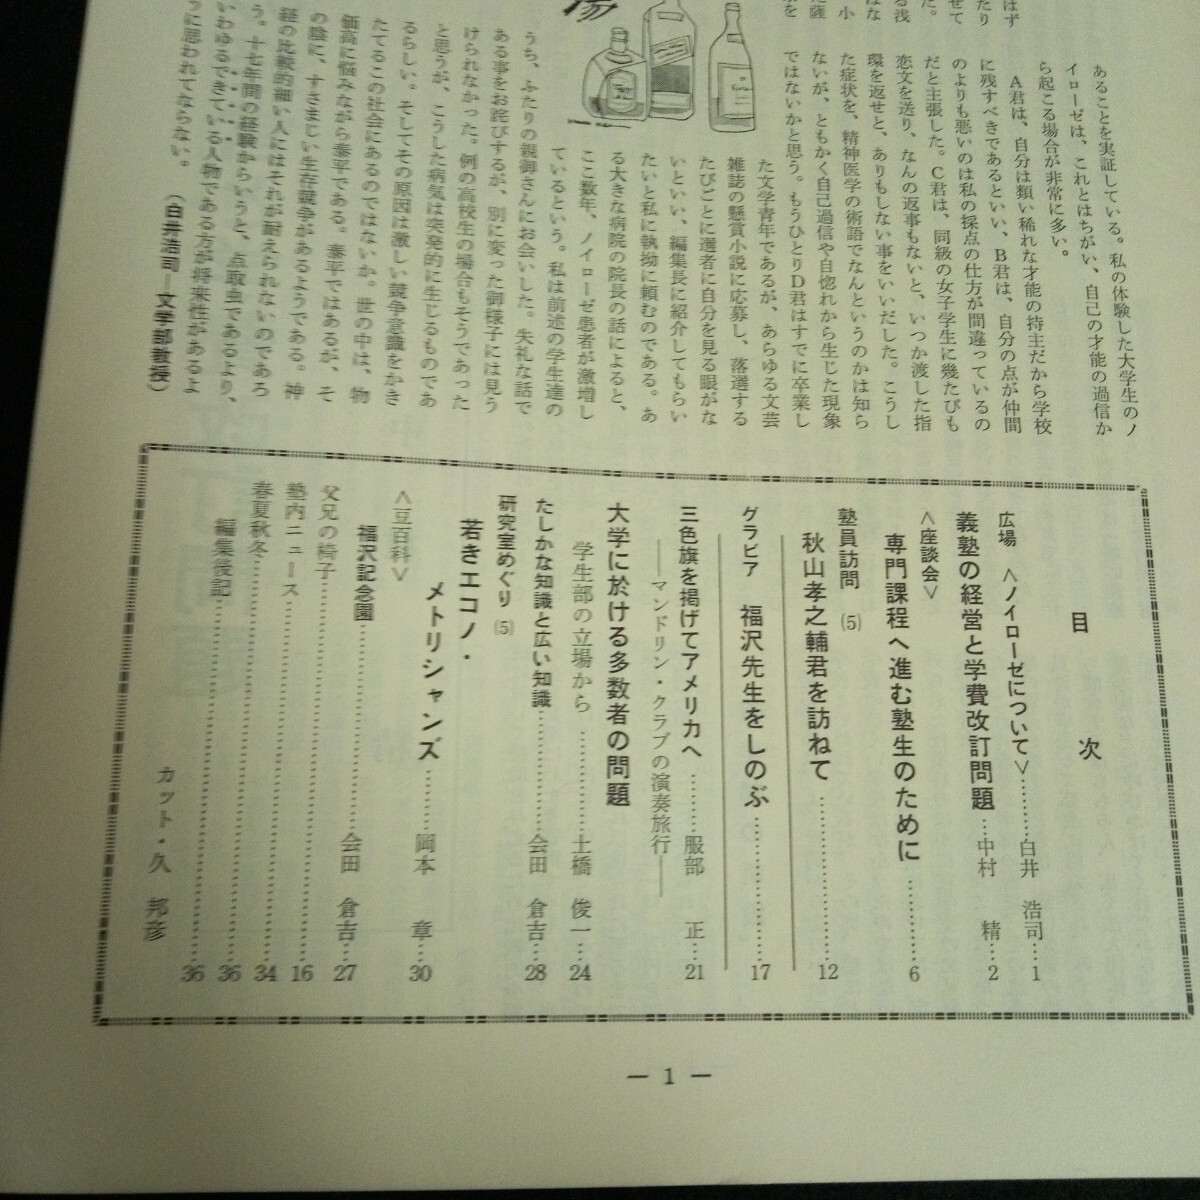 はず
たり
せて
た。
る浅
はな
小
に薩
索を
場
あることを実証している。私の体験した大学生のノ
イローゼは、これとはちがい、自己の才能の過信か
ら起こる場合が非常に多い。
A君は、自分は類い稀れな才能の持主だから学校
に残すべきであるといい、B君は、自分の点が仲間
のよりも悪いのは私の採点の仕方が間違っているの
だと主張した。C君は、同級の女子学生に幾たびも
恋文を送り、なんの返事もないと、いつか渡した指
環を返せと、ありもしない事をいいだした。こうし
た症状を、精神医学の術語でなんというのかは知ら
ないが、ともかく自己過信や自惚れから生じた現象
ではないかと思う。もうひとりD君はすでに卒業し
た文学青年であるが、あらゆる文芸
雑誌の懸賞小説に応募し、落選する
たびごとに選者に自分を見る眼がな
いといい、編集長に紹介してもらい
たいと私に執拗に頼むのである。あ
る大きな病院の院長の話によると、
ここ数年、ノイローゼ患者が激増し
ているという。私は前述の学生達の
うち、ふたりの親御さんにお会いした。失礼な話で
ある事をお詫びするが、別に変った御様子には見う
けられなかった。例の高校生の場合もそうであった
と思うが、こうした病気は突発的に生じるものであ
るらしい。そしてその原因は激しい競争意識をかき
たてるこの社会にあるのではないか。世の中は、物
価高に悩みながら泰平である。泰平ではあるが、そ
の陰に、すさまじい生存競争があるようである。神
経の比較的細い人にはそれが耐えられないのであろ
う。十七年間の経験からいうと、点取虫であるより、
いわゆるできている人物である方が将来性があるよ
うに思われてならない。
(白井浩司―文学部教授)
目次
広場 <ノイローゼについて>………白井 浩司…1
義塾の経営と学費改訂問題…中村 精…2
<座談会>
専門課程へ進む塾生のために…………6
塾員訪問 (5)
秋山孝之輔君を訪ねて…………………12
グラビア 福沢先生をしのぶ…………………17
三色旗を掲げてアメリカへ………服部 正…21
――マンドリン・クラブの演奏旅行――
大学に於ける多数者の問題
学生部の立場から………土橋 俊一…24
たしかな知識と広い知識…………会田 倉吉…28
研究室めぐり (5)
若きエコノ・
メトリシャンズ………岡本 章…30
<豆百科>
福沢記念園…………………会田 倉吉…27
父兄の椅子……………………………………16
塾内ニュース…………………………………34
春夏秋冬………………………………………36
編集後記………………………………………36
カット・久 邦彦
― 1 ―